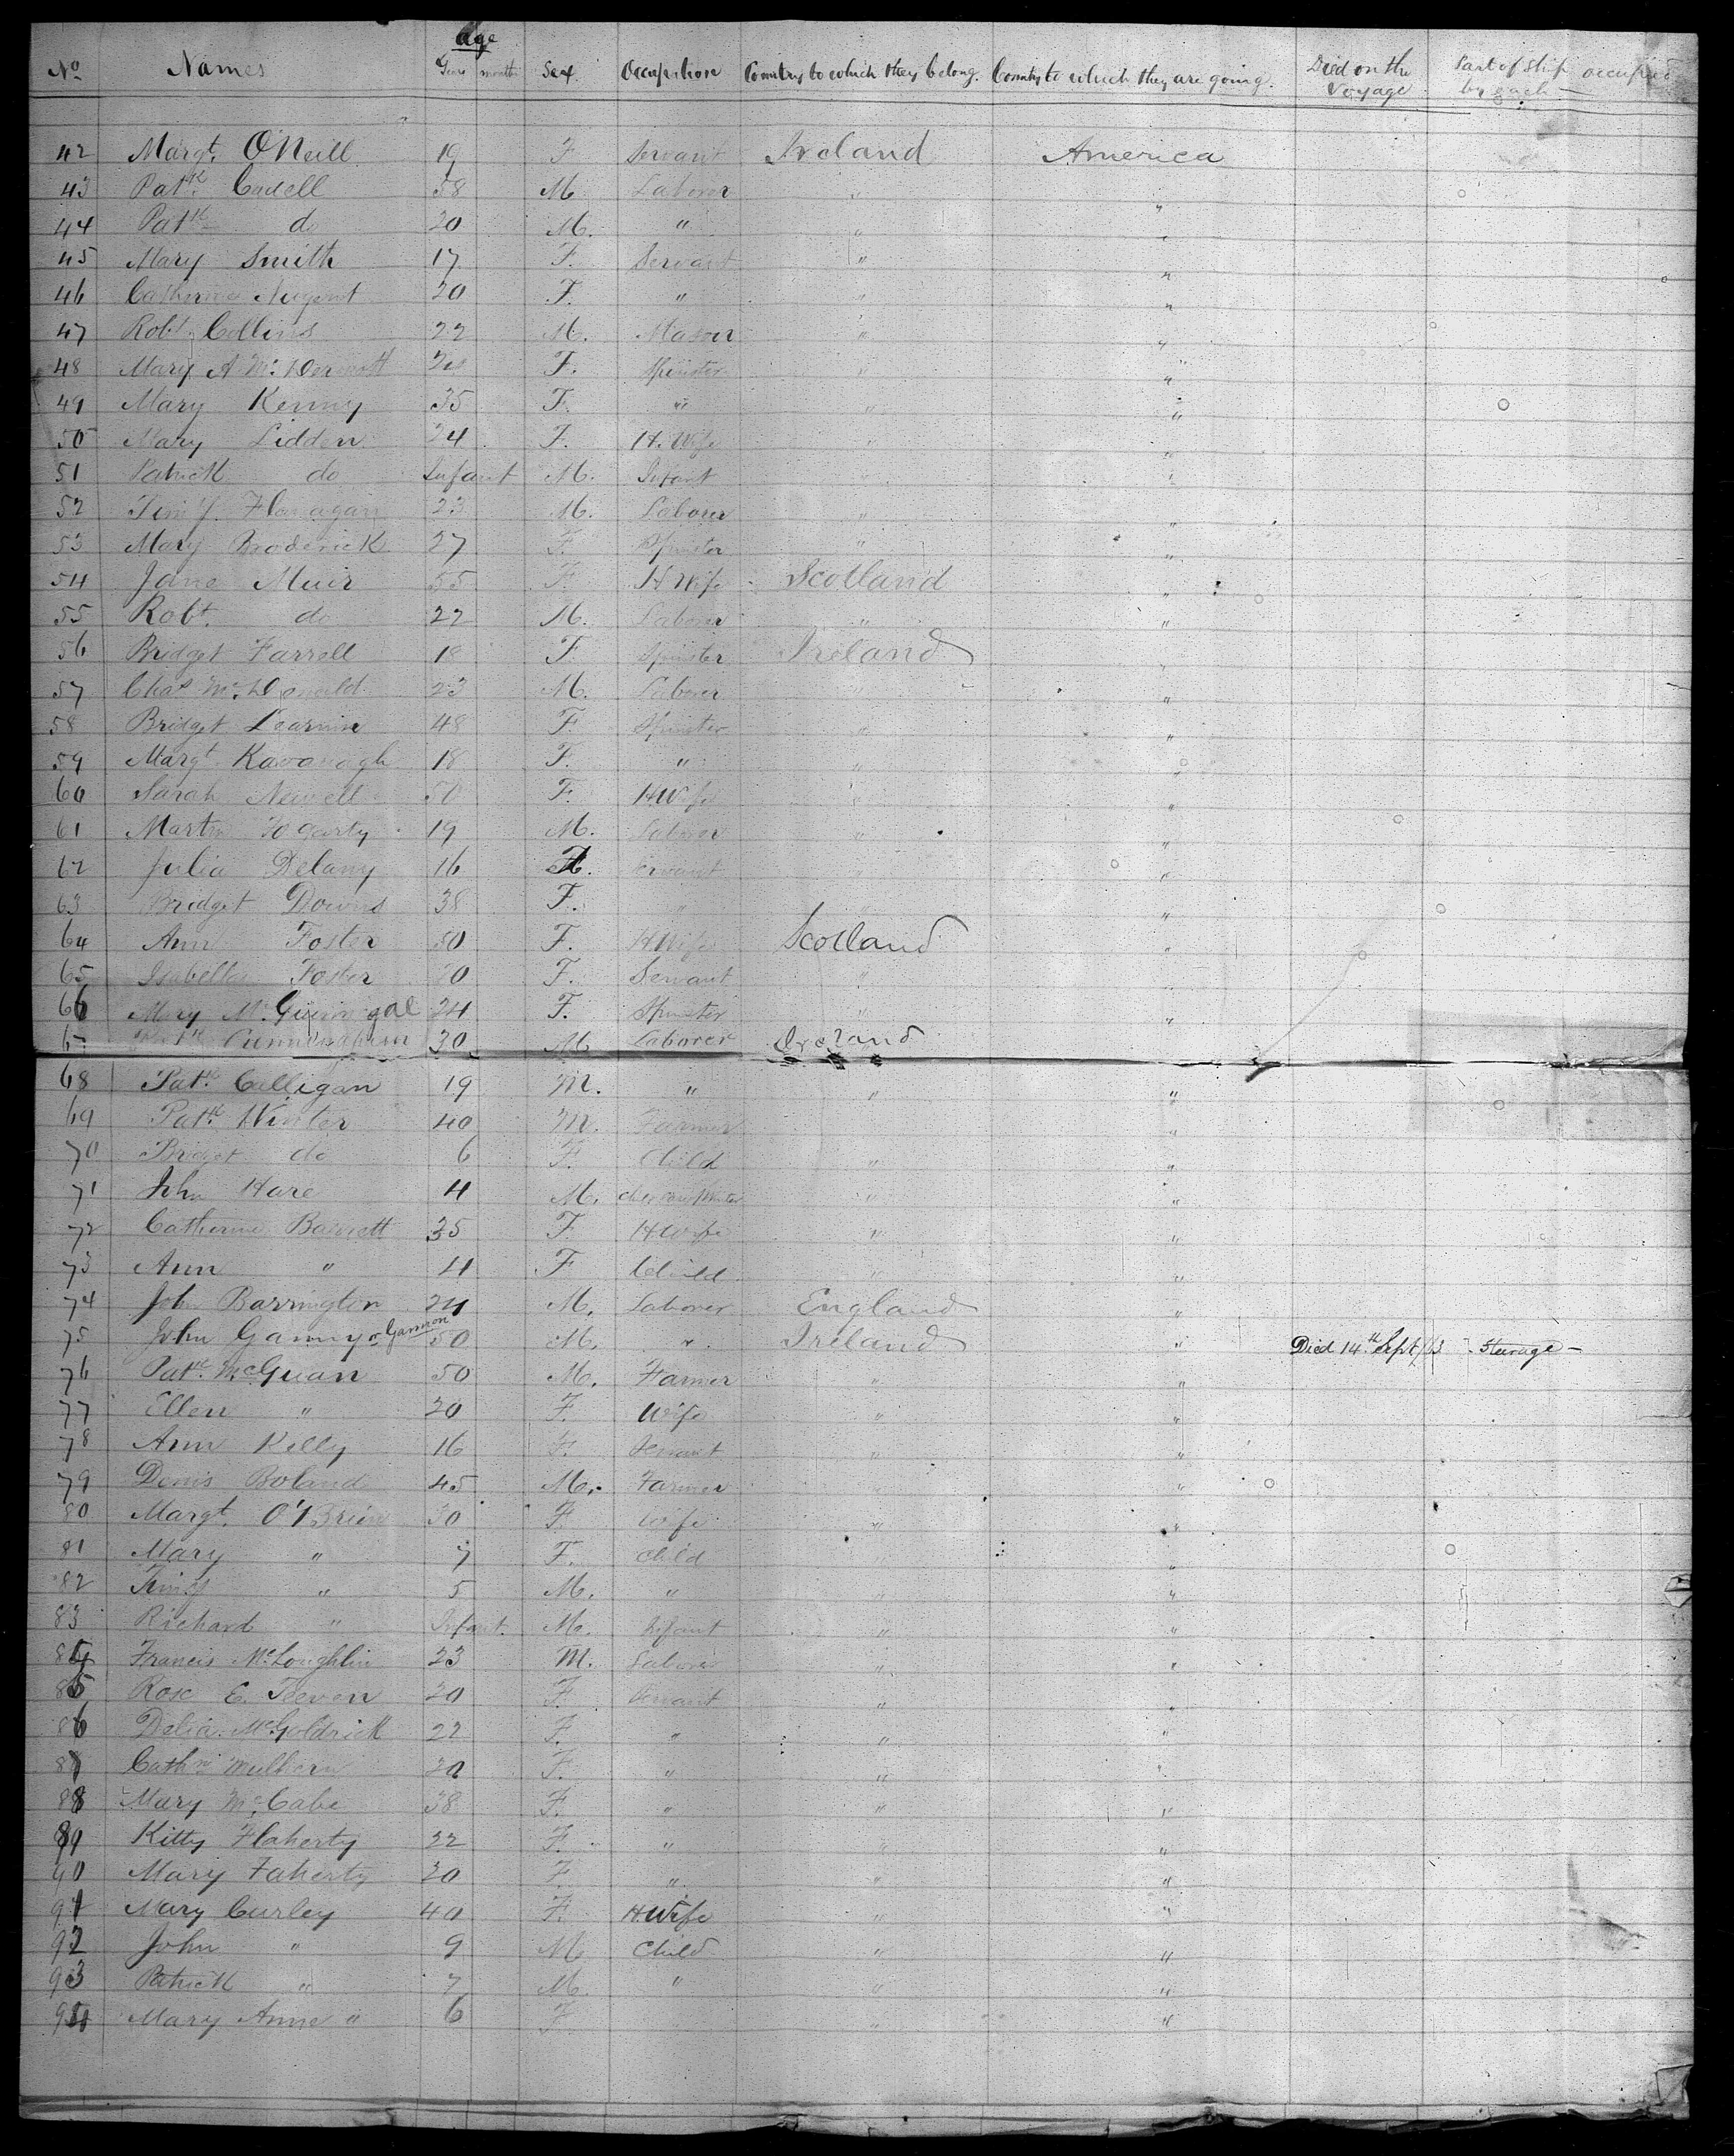 age
No Names Years months Sex. Occupation Country to which they belong. Country to which they are going. Died on the Voyage Part of Ship occupied by each
42 Margt. O'Neill 19 F Servant Ireland America
43 Patk. Cadell 58 M. Laborer " "
44 Patk do 20 M. " " "
45 Mary Smith 17 F. Servant " "
46 Catherine Nugent 20 F. " " "
47 Robt. Collins 22 M. Mason " "
48 Mary A McDermott F. Spinster " "
49 Mary Kenny 35 F. " " "
50 Mary Lidden 24 F. H. Wife " "
51 Patrick do Infant M. Infant " "
52 Timy. Flanagan 23 M. Laborer " "
53 Mary Broderick 27 F. Spinster " "
54 Jane Muir 55 F. H Wife Scotland "
55 Robt. do 22 M. Laborer " "
56 Bridget Farrell 18 F. Spinster Ireland "
57 Chas McDonald 23 M. Laborer " "
58 Bridget 48 F. Spinster " "
59 Margt. Kavanagh 18 F. " " "
60 Sarah Newell 50 F. H Wife " "
61 Martin Fogarty 19 M. Laborer " "
62 Julia Delany 16 F. Servant " "
63 Bridget Downs 38 F. " " "
64 Ann Foster 50 F. H Wife Scotland "
65 Isabella Foster 20 F. Servant " "
66 Mary 24 F. Spinster " "
67 Patk Cunningham 30 M. Laborer Ireland
68 Patk. Culligan 19 M. " " "
69 Patk Winter 40 M. Farmer "
70 Bridget do 6 F. Child " "
71 John Hare 4 M. " "
72 Catherine Barrett 35 F. H Wife " "
73 Ann " 4 F Child " "
74 John Barrington 24 M. Laborer England "
75 John Ganny or Gannon 50 M. " Ireland " Died 14th Sept/63 Steerage -
76 Patk. McGuan 50 M. Farmer " "
77 Ellen " 20 F. Wife " "
78 Ann Kelly 16 F. Servant " "
79 Denis Boland 45 M. Farmer " "
80 Margt. O'Brien 30 F. Wife " "
81 Mary " 7 F. Child " "
82 Timy " 5 M. " " "
83 Richard " Infant. M. Infant " "
84 Francis McLoughlin 23 M. Laborer " "
85 Rose E. Teeven 20 F. Servant " "
86 Delia McGoldrick 22 F. " " "
87 Cathne Mulhern 20 F. " " "
88 Mary McCabe 38 F. " " "
89 Kitty Flaherty 22 F. " " "
90 Mary Faherty 20 F. " " "
91 Mary Curley 40 F. H. Wife " "
92 John " 9 M Child " "
93 Patrick " 7 M. " " "
94 Mary Anne " 6 F. " "